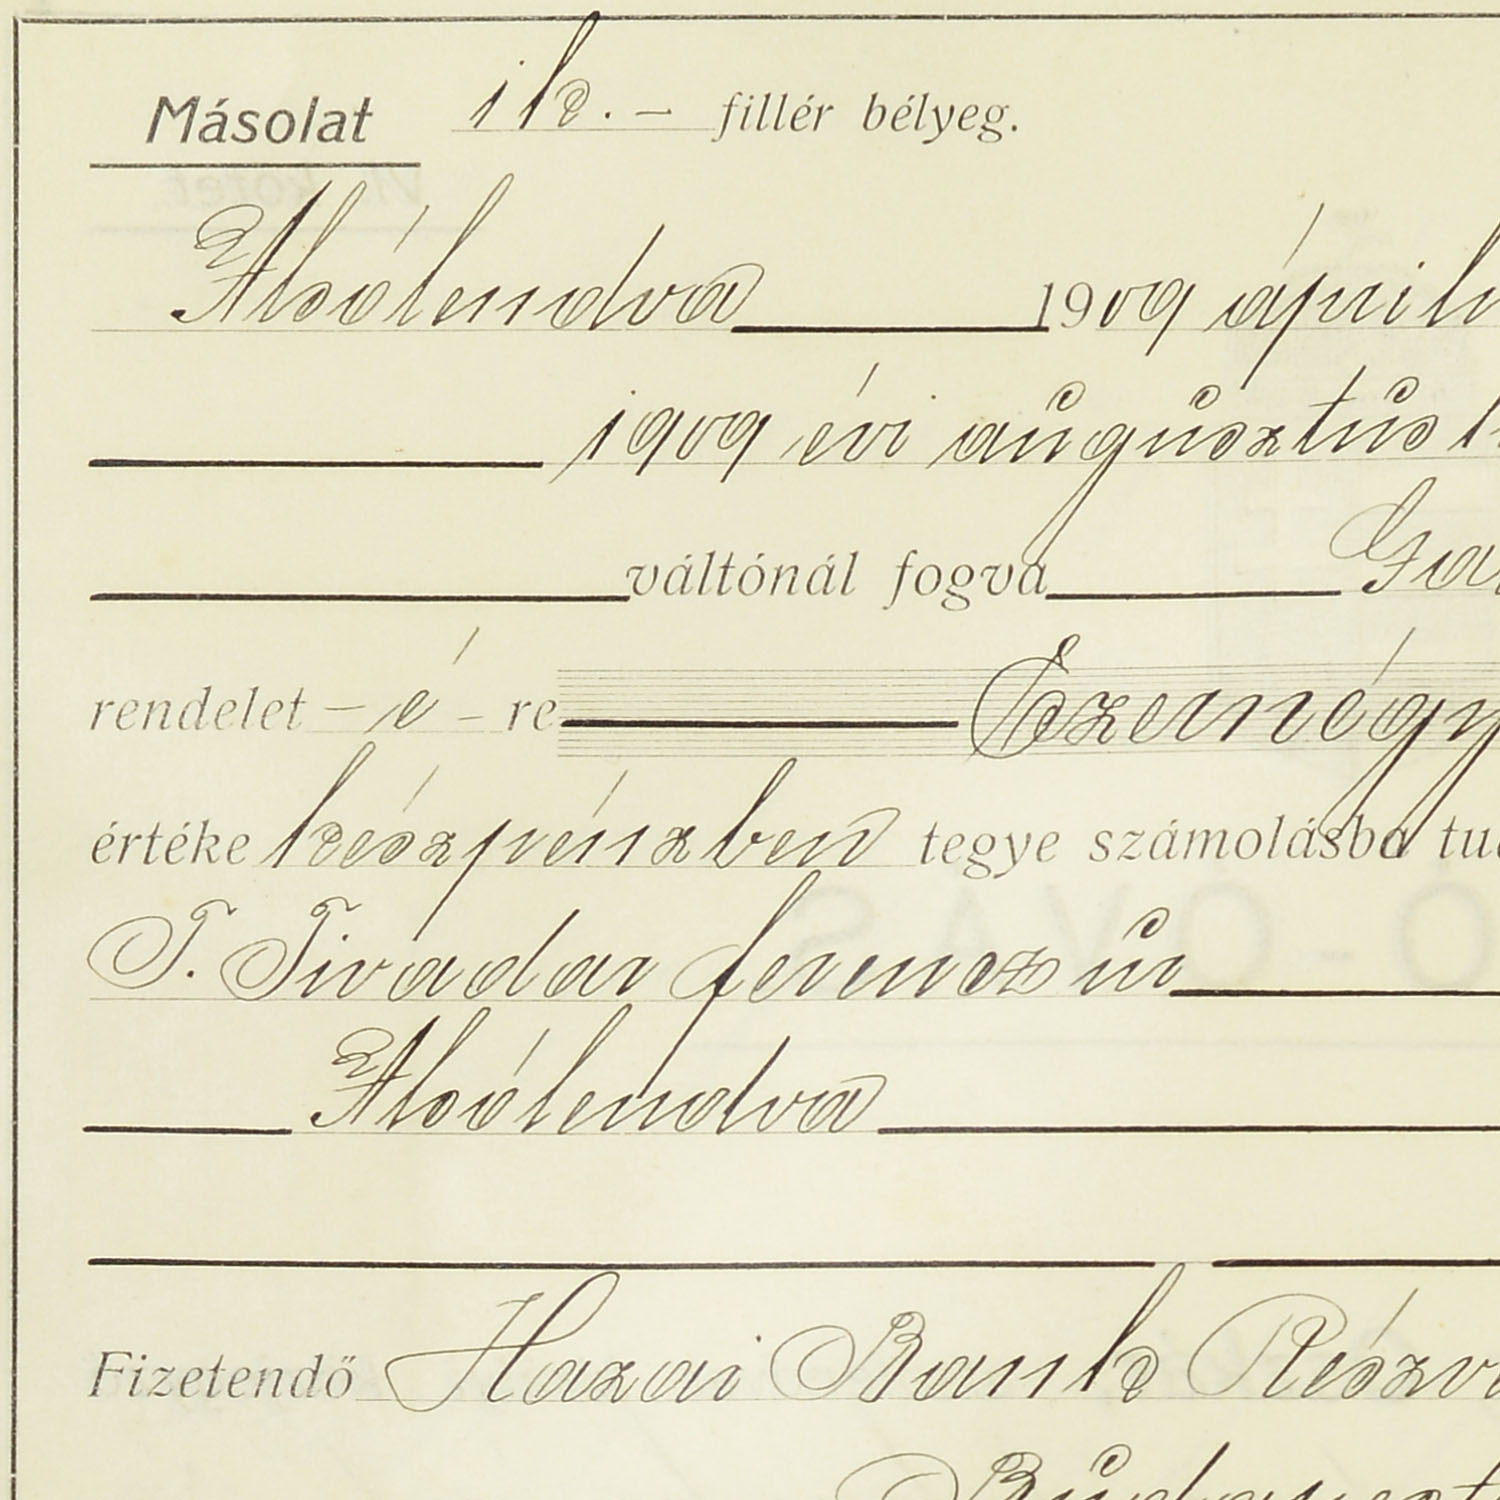 Másolat 1 k. – fillér bélyeg.
Alsólendva 1909 április
1909 évi augusztus 1
váltónál fogva
rendelet – é – re Ezernégy
értéke készpénzben tegye számolásba tu
T. Tivadar Ferencz úr
Alsólendva
Fizetendő Hazai Bank Részv
Budapest